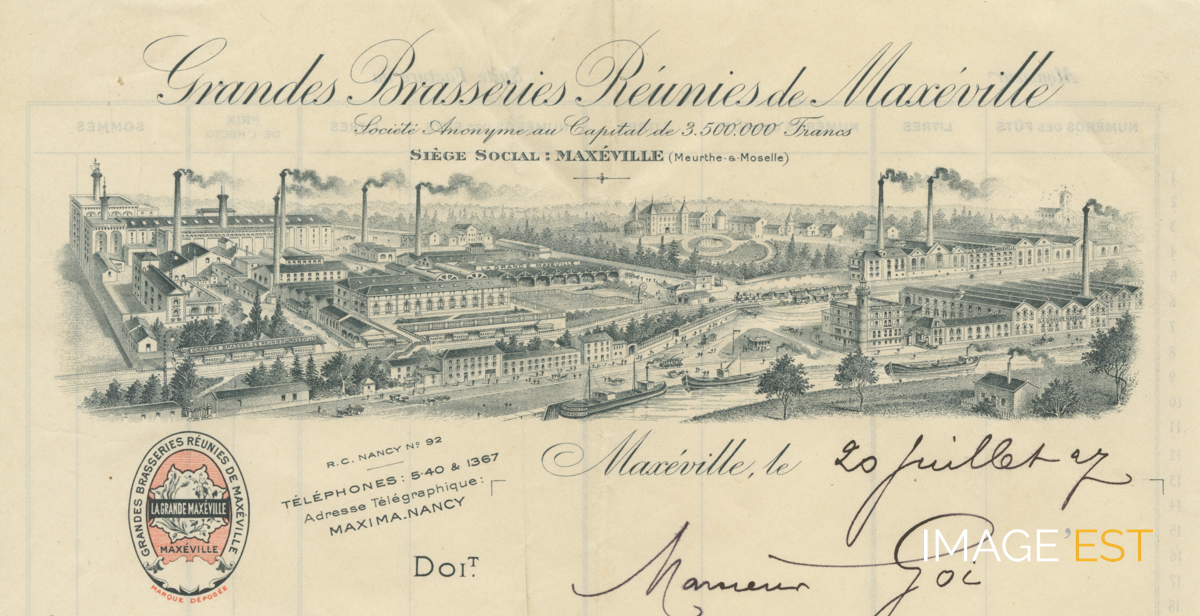 Grandes Brasseries Réunies de Maxéville
Société Anonyme au Capital de 3.500.000 Francs
SIÈGE SOCIAL : MAXÉVILLE (Meurthe-&-Moselle)
LA GRANDE MAXÉVILLE
GRANDES BRASSERIES RÉUNIES DE MAXÉVILLE
LA GRANDE MAXÉVILLE
MAXÉVILLE
MARQUE DÉPOSÉE
R.C. NANCY No 92
TÉLÉPHONES : 5-40 & 1367
Adresse Télégraphique :
MAXIMA-NANCY
Maxéville, le 20 Juillet 27
DOIT.
Monsieur Goi
IMAGE EST